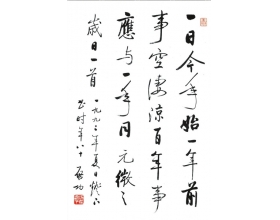 一日今年始一年前
事空淒涼百年事
應与一年同元微之
歲日一首 一九九二年夏日
時年八十 啟功